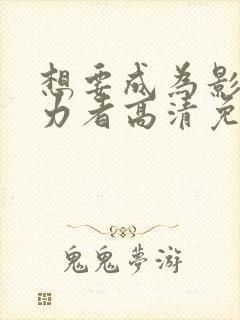 想要成为影
力者高清免
鬼鬼夢游